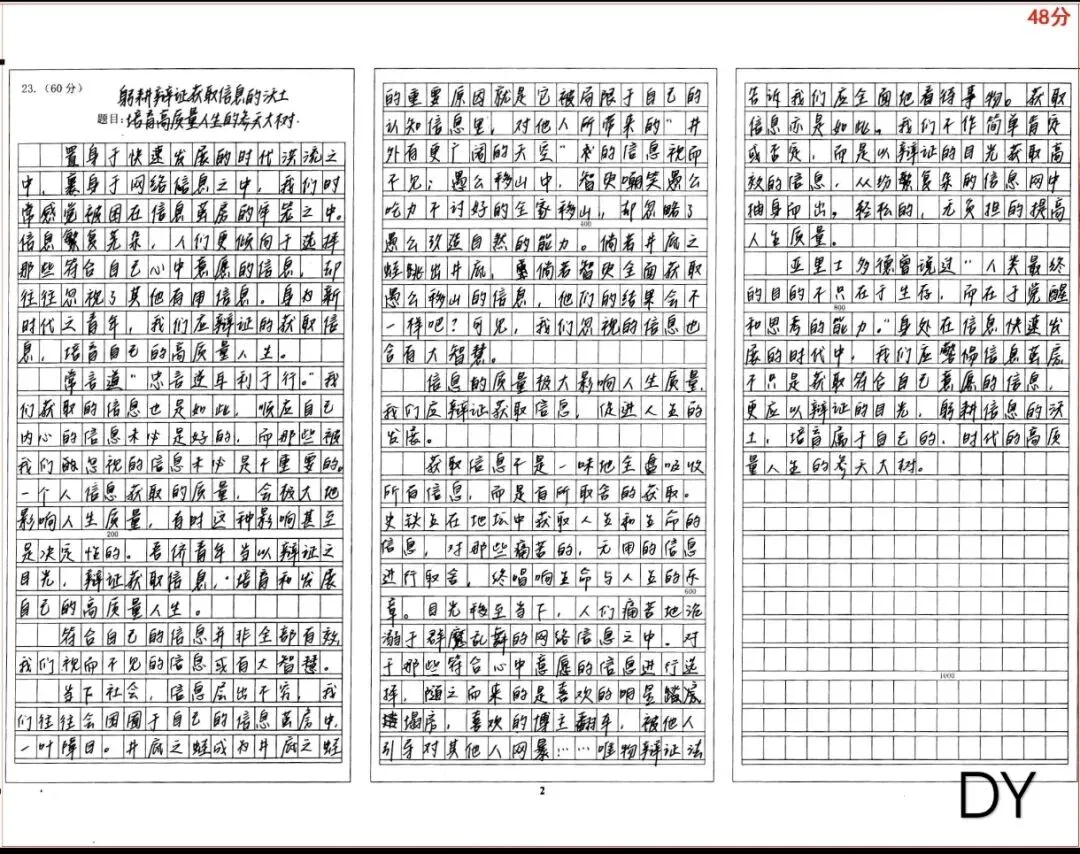 48分
23.（60分）
躬耕辩证获取信息的沃土
题目:培育高质量人生的参天大树.
置身于快速发展的时代洪流之
中，裹身于网络信息之中，我们时
常感觉被困在信息茧房的牢笼之中。
信息繁复芜杂，人们更倾向于选择
那些符合自己心中意愿的信息，却
往往忽视了其他有用信息。身为新
时代之青年，我们应辩证的获取信
息，培育自己的高质量人生。
常言道“忠言逆耳利于行。”我
们获取的信息也是如此，顺应自己
内心的信息未必是好的，而那些被
我们的忽视的信息未必是不重要的。
一个人信息获取的质量，会极大地
影响人生质量，有时这种影响甚至
200
是决定性的。吾侪青年当以辩证之
目光，辩证获取信息，培育和发展
自己的高质量人生。
符合自己的信息并非全部有效，
我们视而不见的信息或有大智慧。
当下社会，信息层出不穷，我
们往往会囿囿于自己的信息茧房中，
一叶障目。井底之蛙成为井底之蛙
的重要原因就是它被局限于自己的
认知信息里，对他人所带来的“井
外有更广阔的天空”的信息视而
不见；愚公移山中，智叟嘲笑愚公
吃力不讨好的全家移山，却忽略了
400
愚公改造自然的能力。倘若井底之
蛙跳出井底，倘若智叟全面获取
愚公移山的信息，他们的结果会不
一样吧？可见，我们忽视的信息也
含有大智慧。
信息的质量极大影响人生质量，
我们应辩证获取信息，促进人生的
发展。
获取信息不是一味地全盘吸收
所有信息，而是有所取舍的获取。
史铁生在地坛中获取人生和生命的
信息，对那些痛苦的，无用的信息
进行取舍，终唱响生命与人生的乐
600
章。目光移至当下，人们痛苦地沦
溺于群魔乱舞的网络信息之中。对
于那些符合心中意愿的信息进行选
择，随之而来的是喜欢的明星
塌房，喜欢的博主翻车，被他人
引导对其他人网暴……唯物辩证法
2
告诉我们应全面地看待事物。获取
信息亦是如此。我们不作简单肯定
或否定，而是以辩证的目光获取高
效的信息，从纷繁复杂的信息网中
抽身而出，轻松的，无负担的提高
人生质量。
亚里士多德曾说过“人类最终
的目的不只在于生存，而在于觉醒
800
和思考的能力。”身处在信息快速发
展的时代中，我们应警惕信息茧房，
不只是获取符合自己意愿的信息，
更应以辩证的目光，躬耕信息的沃
土，培育属于自己的，时代的高质
量人生的参天大树。
1000
DY